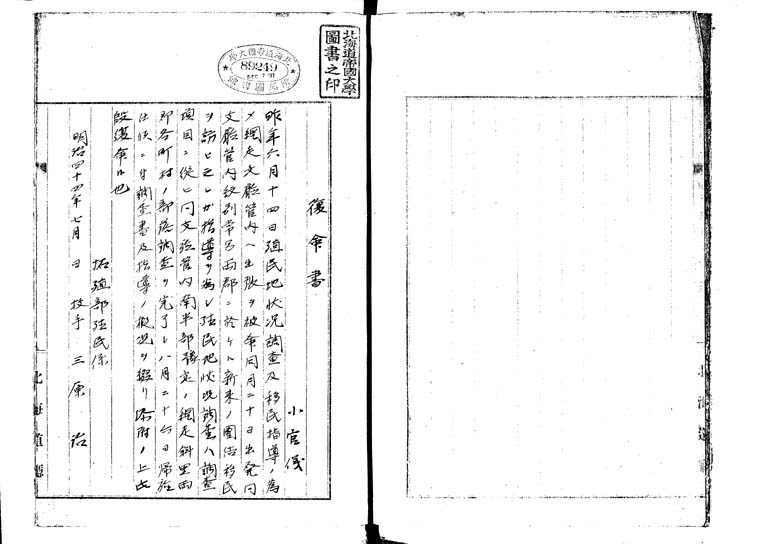 北海道帝國大學
圖書之印
89249
復命書
小官儀
昨年六月十四日殖民地状況調査及移民指導ノ為
メ網走支廳管内ヘ出張ヲ被命同月二十日出発同
支廳管内紋別常呂両郡ニ於ケル新来ノ團体移民
ヲ訪ヒ之レガ指導ヲ為シ殖民地状況調査ハ調査
項目ニ従ヒ同支廳管内南半部豫定ノ網走斜里両
郡各町村ノ部落調査ヲ完了シ八月二十六日帰旅
仕候ニ付調査書及指導ノ概況ヲ綴リ添附ノ上此
段復命候也
明治四十四年七月 日
拓殖部殖民係
技手 三原 治
北海道廳
北海道廳